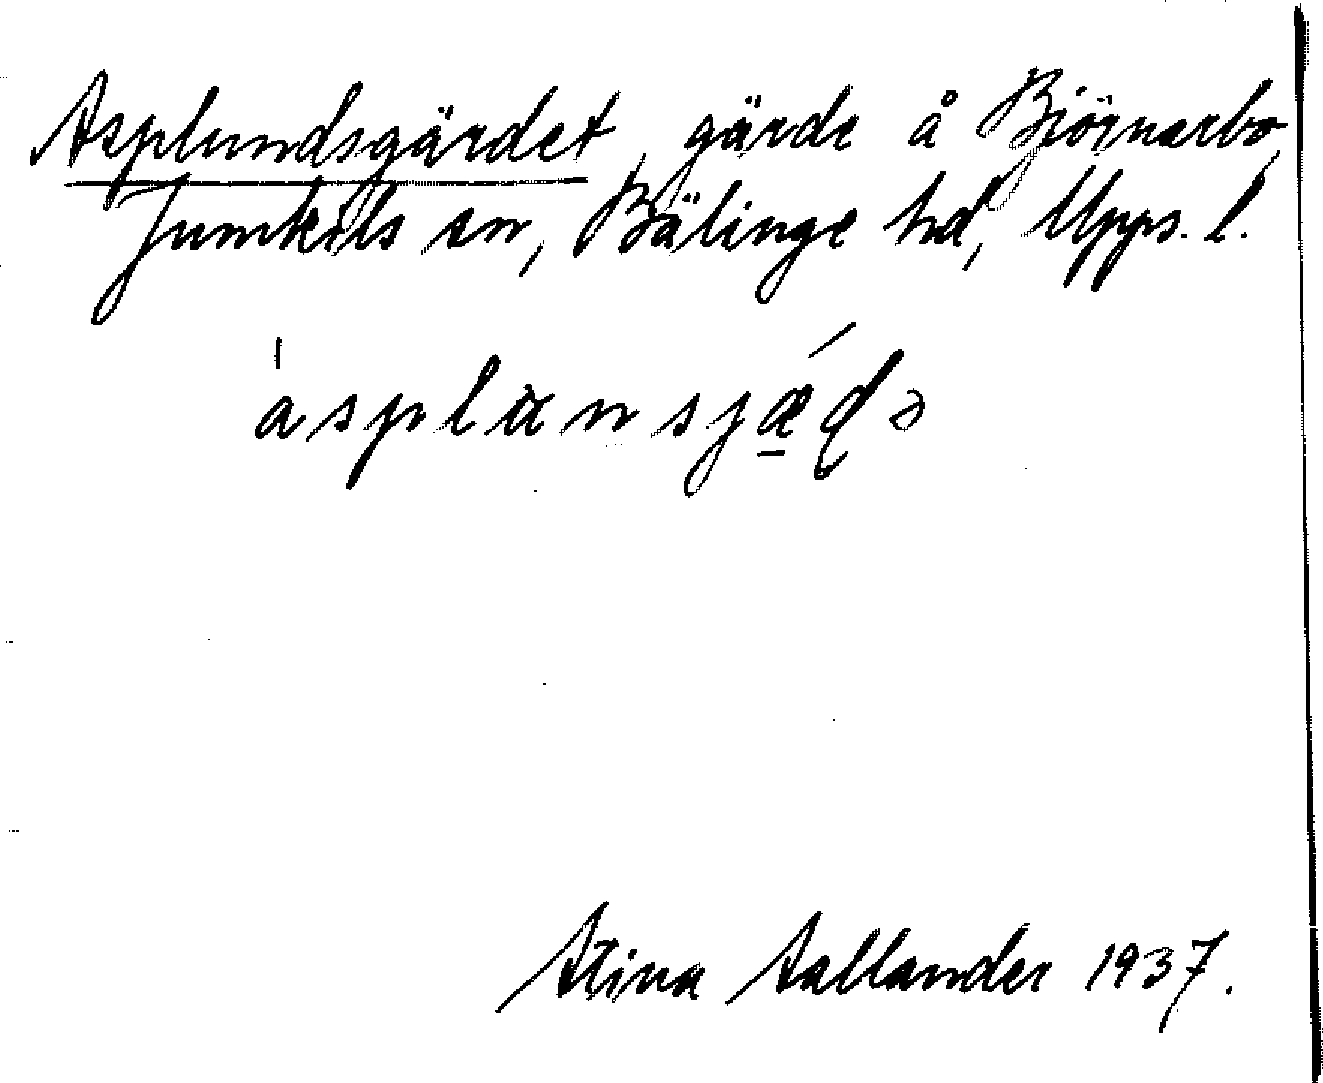 Asplundsgärdet, gärde å Björnarbo,
Jumkils sn, Bälinge hd, Upps. l.
Stina Sallander 1937.